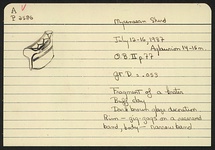 A
P 2586
Mycenaean Sherd
July 12-16, 1937
14-16 m
O.B. II p. 77
gr. D. = .053
Fragment of a
Buff clay
Dark brown glaze decoration.
Rim - zig-zags on a reserved
band, body - narrow band